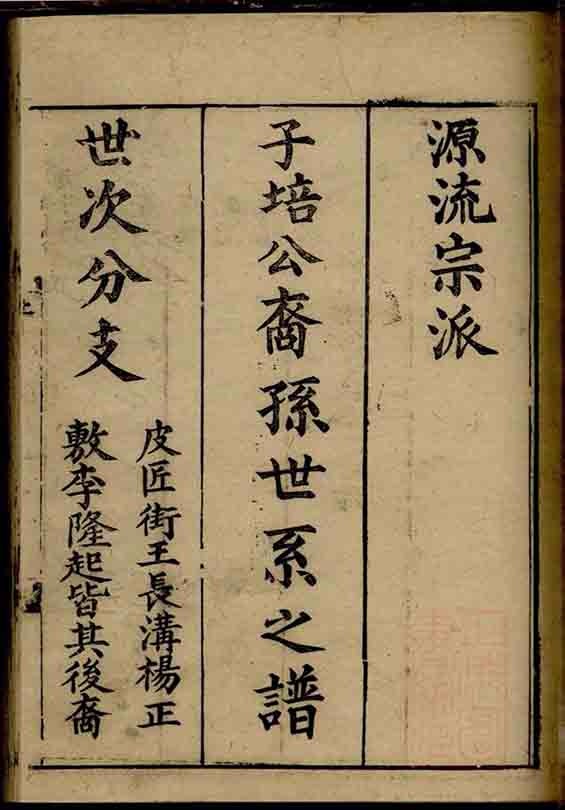 源流宗派
子培公裔孫世系之譜
世次分支
皮匠街王長溝楊正
敷李隆起皆其後裔